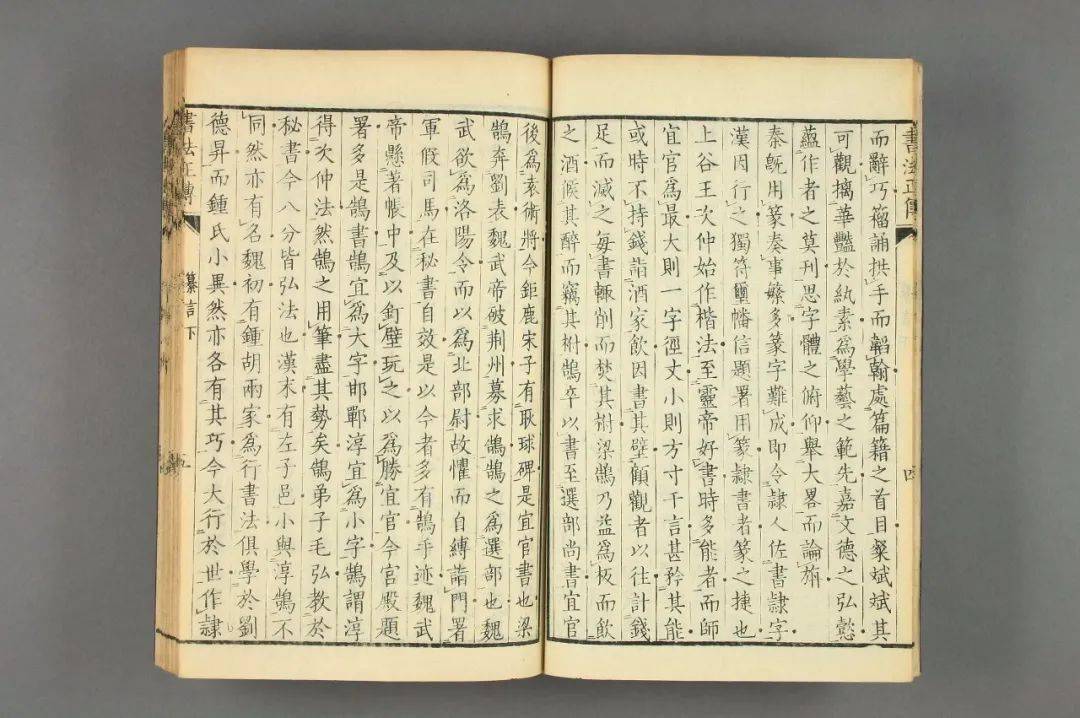 書法正傳
四
而辭巧籀誦拱手而韜翰處篇籍之首目粲斌斌其
可觀摛華豔於紈素爲學藝之範先嘉文德之弘懿
蘊作者之莫刊思字體之俯仰舉大畧而論旃
秦旣用篆奏事繁多篆字難成即令隸人佐書隸字
漢因行之獨符璽幡信題署用篆隸書者篆之捷也
上谷王次仲始作楷法至靈帝好書時多能者而師
宜官爲最大則一字逕丈小則方寸千言甚矜其能
或時不持錢詣酒家飲因書其壁顧觀者以往計錢
足而滅之每書輙削而焚其柎梁鵠乃益爲板而飲
之酒候其醉而竊其柎鵠卒以書至選部尚書宜官
後爲袁術將今鉅鹿宋子有耿球碑是宜官書也梁
鵠奔劉表魏武帝破荆州募求鵠鵠之爲選部也魏
武欲爲洛陽令而以爲北部尉故懼而自縛詣門署
軍假司馬在秘書自效是以今者多有鵠手迹魏武
帝懸著帳中及以釘壁玩之以爲勝宜官今官殿題
署多是鵠書鵠宜爲大字邯鄲淳宜爲小字鵠謂淳
得次仲法然鵠之用筆盡其勢矣鵠弟子毛弘教於
秘書今八分皆弘法也漢末有左子邑小與淳鵠不
同然亦有名魏初有鍾胡兩家爲行書法俱學於劉
德昇而鍾氏小異然亦各有其巧今大行於世作隸
書法正傳
纂言下